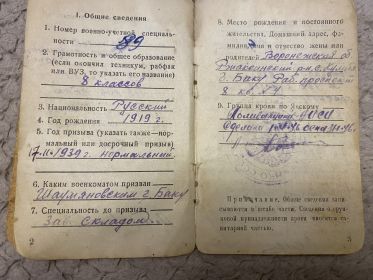 I. Общие сведения
1. Номер военно-учетной специаль-
ности 99
2. Грамотность и общее образование
(если окончил техникум, рабфак
или ВУЗ, то указать его название)
8 классов
3. Национальность Русский
4. Год рождения 1919 г.
5. Год призыва (указать также—нор-
мальный или досрочный призыв)
1939 г. нормальный.
6. Каким военкоматом призван
Шаумяновским г. Баку
7. Специальность до призыва
Зав. складом.
2
8. Место рождения и постоянного
жительства. Домашний адрес, фа-
милия и отчество жены или
родителей Воронежская об
г. Баку Раб. проспект
8 кв.
9. Группа крови по Янскому
Примечание. Общие сведения запи-
сываются в штабе части. Сведения о груп-
повой принадлежности крови вносятся са-
нитарной частью.
3